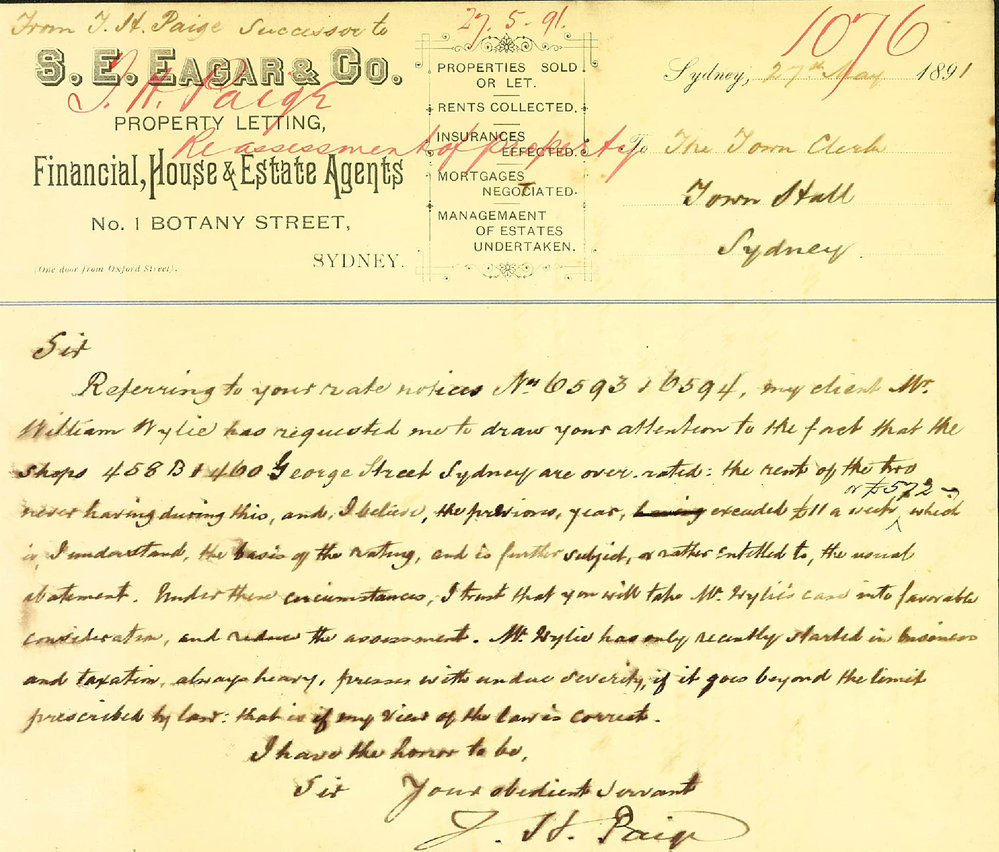 From J. H. Paige Successor to
27.5-91.
1076
S. E. EAGAR & CO.
J. H. Paige
PROPERTY LETTING,
Re assessment of property
Financial, House & Estate Agents
No. 1 BOTANY STREET,
SYDNEY.
(One door from Oxford Street).
PROPERTIES SOLD
OR LET.
RENTS COLLECTED.
INSURANCES
EFFECTED.
MORTGAGES
NEGOTIATED.
MANAGEMAENT
OF ESTATES
UNDERTAKEN.
Sydney, 27th May 1891
To The Town Clerk
Town Hall
Sydney
Sir
Referring to your rate notices Nos 6593 & 6594, my client Mr.
William Wylie has requested me to draw your attention to the fact that the
shops 458 B & 460 George Street Sydney are over-rated: the rent of the two
never having during this, and, I believe, the previous, year, having exceeded £11 a week, or £572 - which
is, I understand, the basis of the rating, and is further subject, or rather entitled to, the usual
abatement. Under these circumstances, I trust that you will take Mr. Wylie's case into favorable
consideration, and reduce the assessment. Mr Wylie has only recently started in business
and taxation, always heavy, presses with undue severity, if it goes beyond the limit
prescribed by law: that is if my view of the law is correct.
I have the honor to be,
Sir Your obedient servant
J. H. Paige